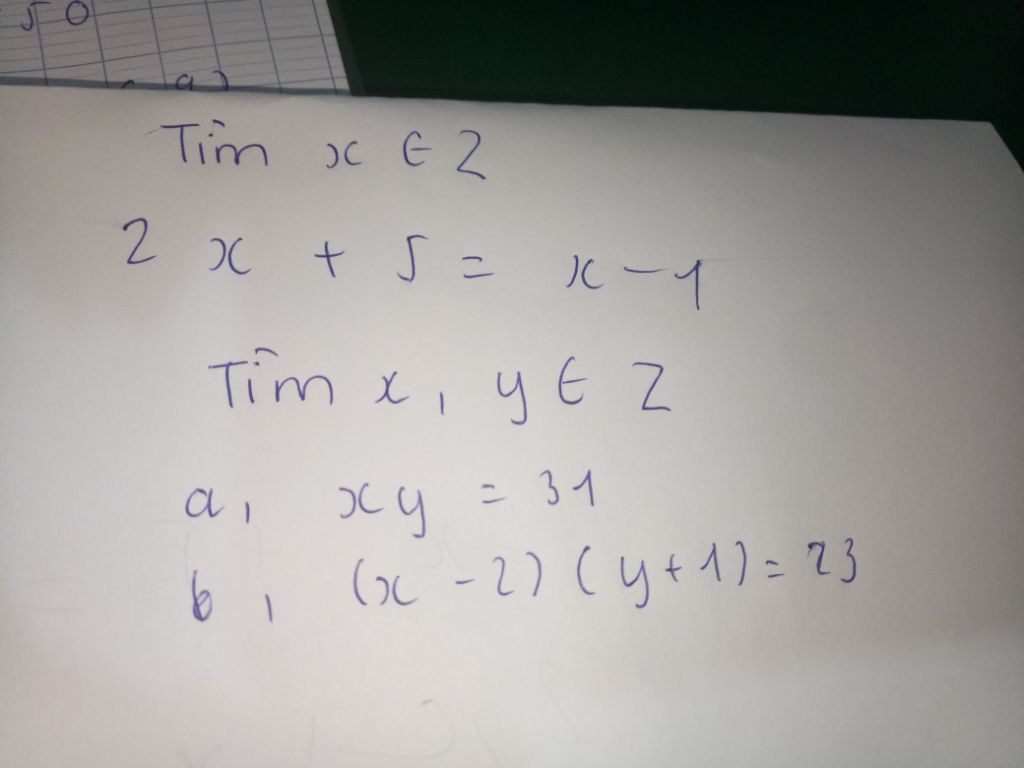 50
a)
Tìm x ∈ Z
2 x + 5 = x - 1
Tìm x, y ∈ Z
a, xy = 31
b, (x - 2) (y + 1) = 23